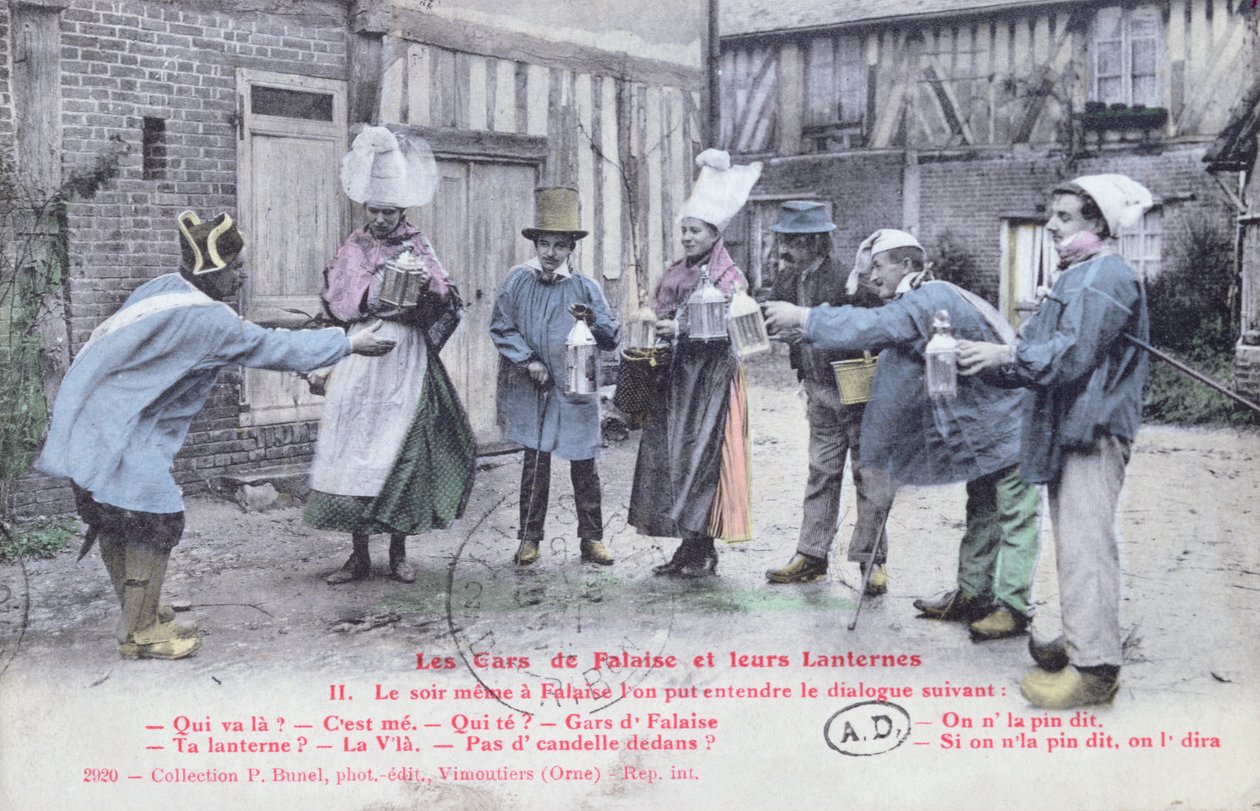 Les Gars de Falaise et leurs Lanternes
II. Le soir même à Falaise l'on put entendre le dialogue suivant :
— Qui va là ? — C'est mé. — Qui té ? — Gars d' Falaise
— Ta lanterne ? — La V'là. — Pas d' candelle dedans ?
A.D.
— On n' la pin dit.
— Si on n'la pin dit, on l' dira
2920 — Collection P. Bunel, phot.-édit., Vimoutiers (Orne) - Rep. int.